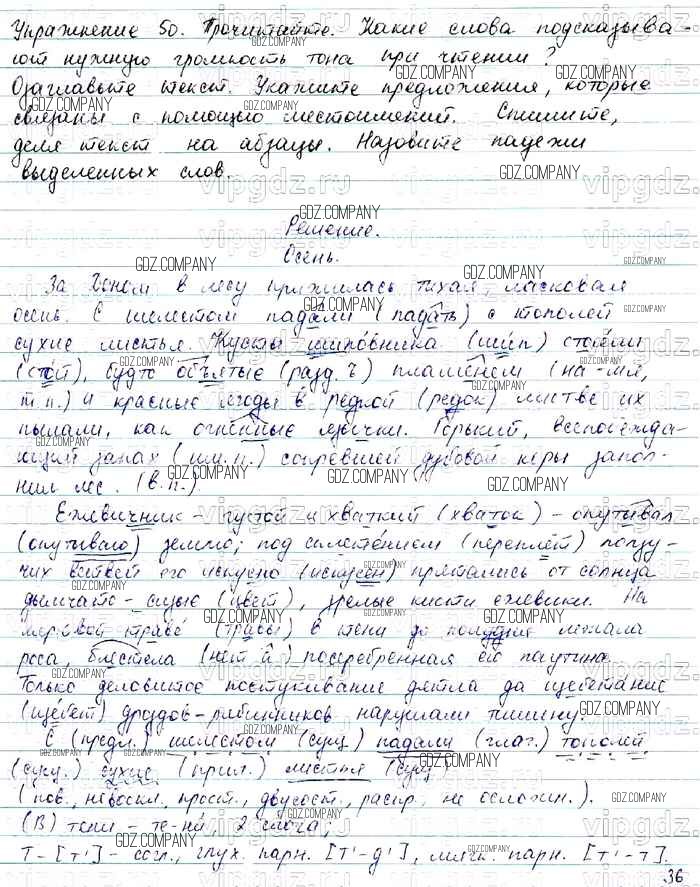 Упражнение 50. Прочитайте. Какие слова подсказыва-
ют нужную громкость тона при чтении?
Озаглавьте текст. Укажите предложения, которые
связаны с помощью местоимений. Спишите,
деля текст на абзацы. Назовите падежи
выделенных слов.
Решение.
Осень.
За Доном в лесу прижилась тихая, ласковая
осень. С шелестом падали (падать) с тополей
сухие листья. Кусты шиповника (шип) стояли
(стой), будто объятые (разд. ъ) пламенем (на -мя,
т.п.) и красные ягоды в редкой (редок) листве их
пылали, как огненные язычки. Горький, всепобежда-
ющий запах (им.п.) сопревшей дубовой коры запол-
нил лес. (в.п.)
Ежевичник - густой и хваткий (хваток) - опутывал
(опутываю) землю; под сплетением (переплёт) ползу-
чих ветвей его искусно (искусен) прятались от солнца
дымчато-сизые (цвет), зрелые кисти ежевики. На
мертвой траве (травы) в тени до полудня лежала
роса, блестела (нет а) посеребренная ею паутина.
Только деловитое постукивание дятла да щебетание
(щебет) дроздов-рябинников нарушали тишину.
С (предл.) шелестом (сущ.) падали (глаг.) тополей
(сущ.) сухие (прил.) листья (сущ.)
(пов., невоскл., прост., двусост., распр., не осложн.).
(В) тени - те-ни, 2 слога;
т - [т'] - согл., глух. парн. [т'-д'], мягк. парн. [т'-т].
36
GDZ.COMPANY
vipgdz.ru